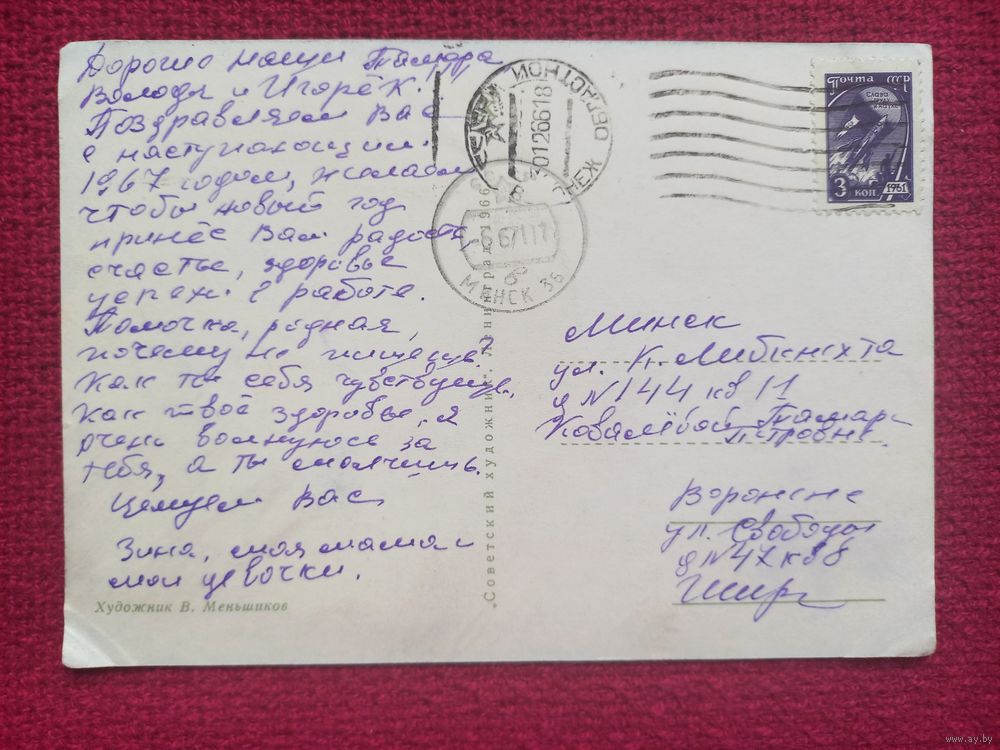 Дорогие наши Тамара
Володя и Игорёк.
Поздравляем Вас
с наступающим
1967 годом, желаем
чтобы новый год
принёс Вам радость,
счастье, здоровье
успех в работе.
Томочка, родная,
почему не пишешь.
Как ты себя чувствуешь,
как твоё здоровье, я
очень волнуюсь за
тебя, а ты молчишь.
Целуем Вас
Зина, моя мама и
мои девочки.
Художник В. Меньшиков
"Советский художник". Ленинград. 1966
ОБЛАСТНОЙ
01266618
МИНСК 36
Почта СССР
3 коп
1961
Минск
ул. К. Либкнехта
д N 144 кв 11
Ковалёвой Тамаре
Петровне
Воронеж
ул. Свободы
д N 47 кв 8
www.ay.by